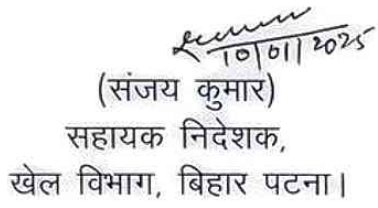 10/01/2025
(संजय कुमार)
सहायक निदेशक,
खेल विभाग, बिहार पटना।